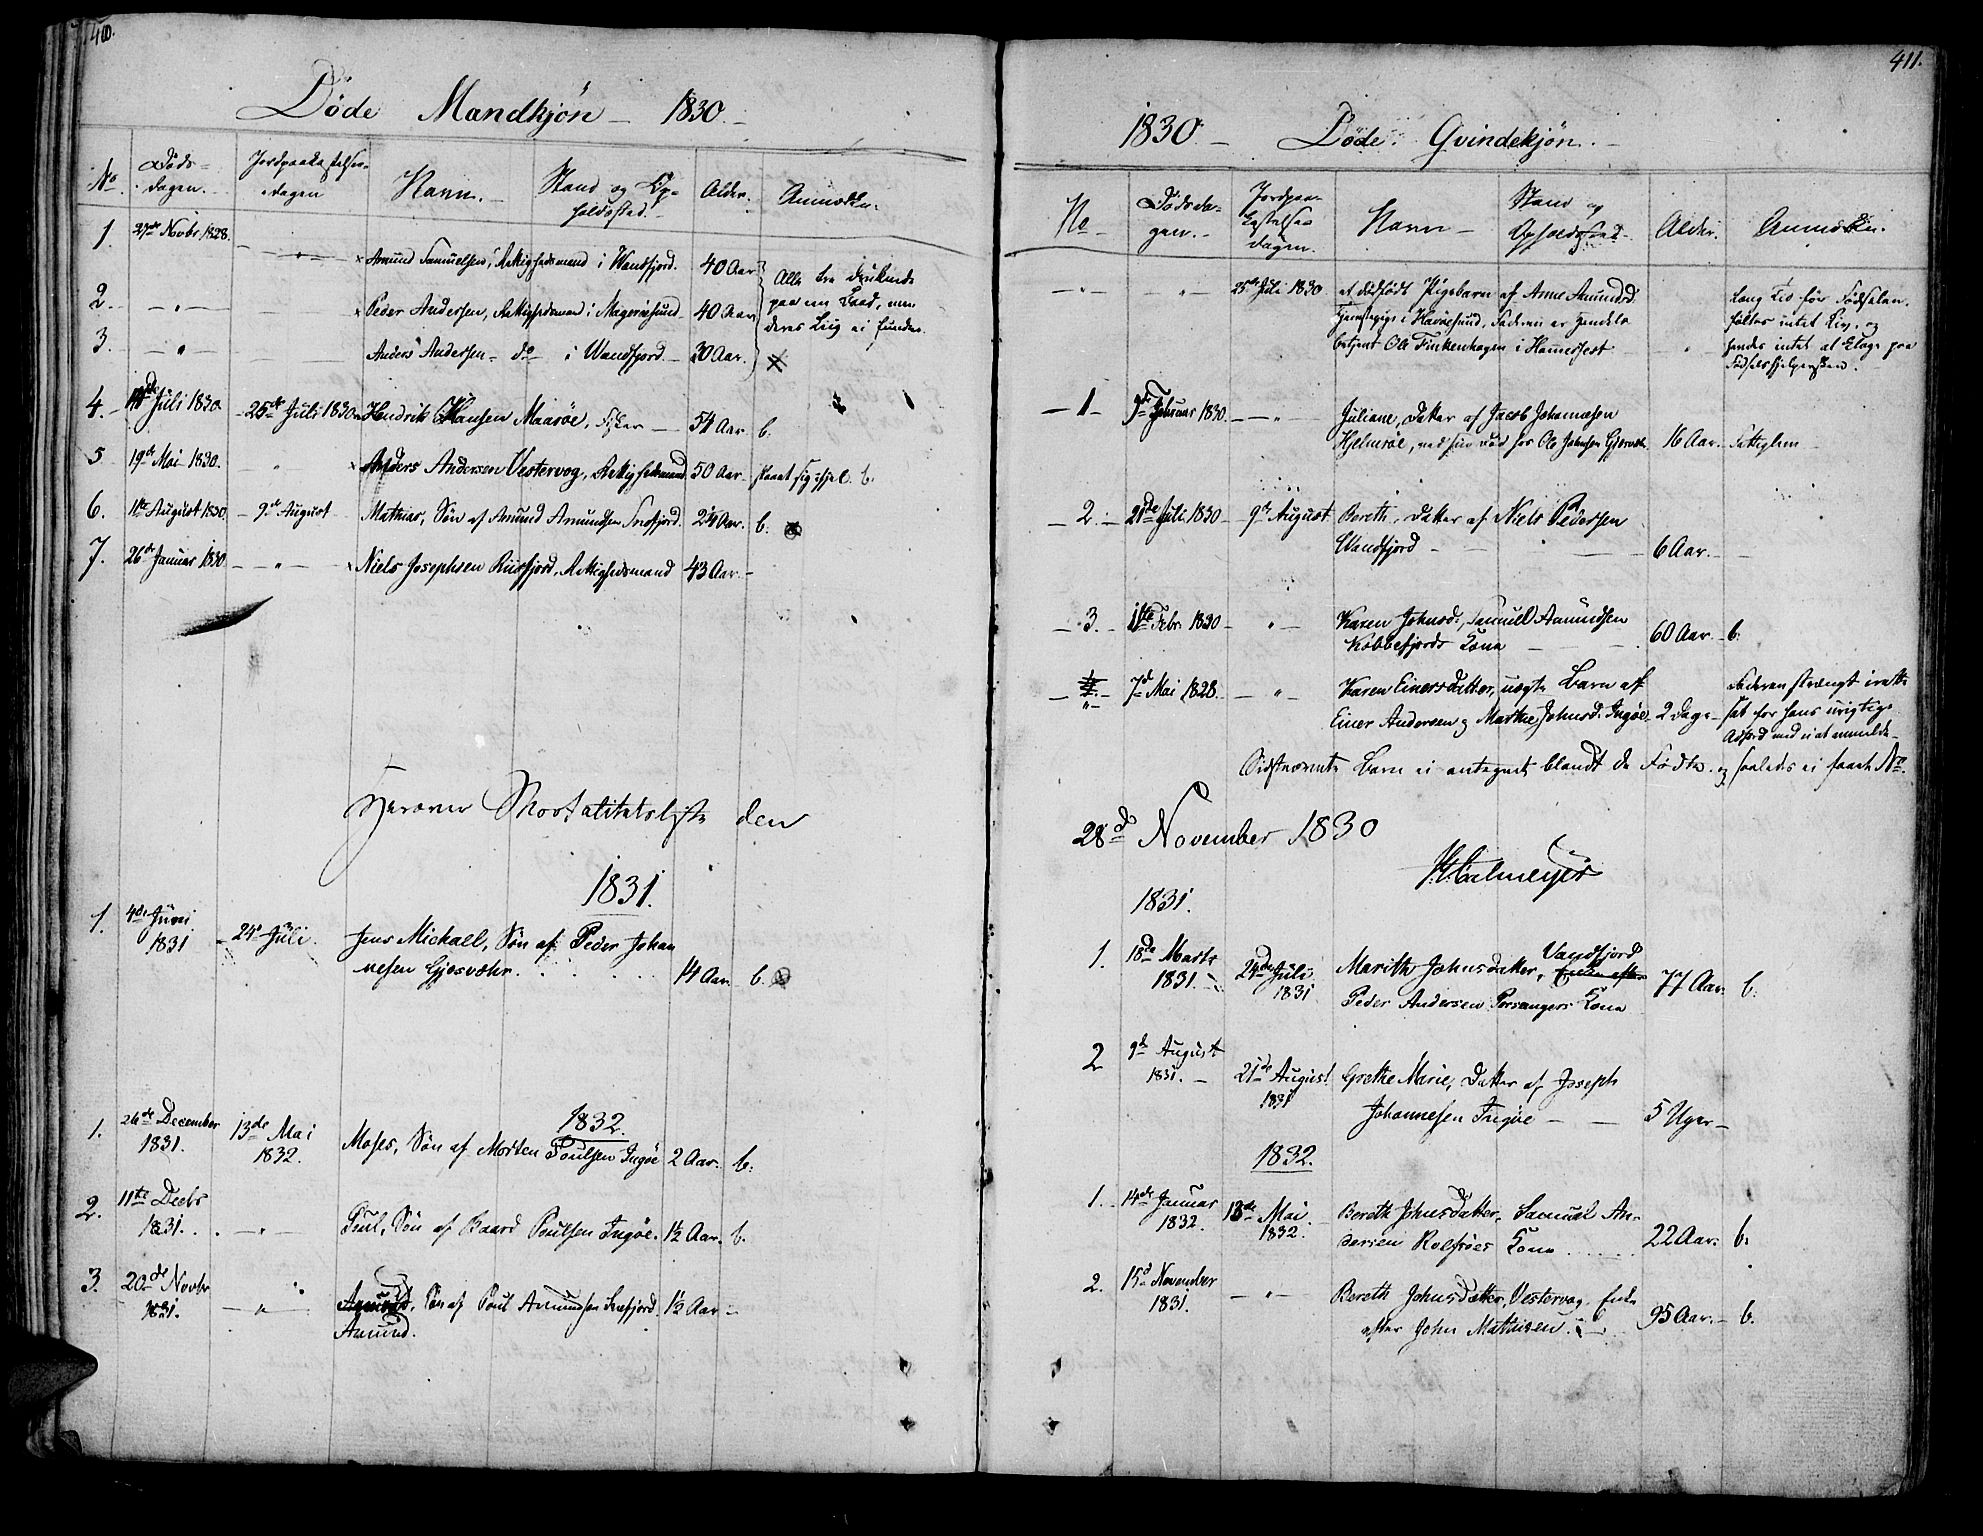 410.
Døde Mandkjøn – 1830.–
No. Døds-dagen. Jordpaakastelses-dagen Navn. Stand og Opholdssted. Alder. Anmærkn.
1. 27de Novbr. 1828. – " – Amund Samuelsen, Rettighedsmand i Vandfjord. 40 Aar
2. – " – Peder Andersen, Rettighedsmand i Magerøesund 40 Aar
3. – " – Anders Andersen – do – i Vandfjord – 30 Aar.
Alle tre druknede
paa en Baad, men
deres Liig ei funden.
4. Juli 1830 – 25de Juli 1830 – Hendrik Hansen Maasøe, Fisker – 54 Aar b.
5 19de Mai 1830. " Anders Andersen Vestervog, Rettighedsmand 50 Aar – skaaret sig ihjel. b.
6. 11te August 1830 – 9de August Mathias, Søn af Amund Amundsen Snefjord. 24 Aar. b.
7. 26de Januar 1830 – " – Niels Josephsen Ruusfjord, Rettighedsmand 43 Aar. –
Herover Mortalitetsliste den
1831.
1. 4de Juni
1831 – 24de Juli. Jens Mickall, Søn af Peder Johan
nesen Gjesvæhr. 14 Aar b.
1832.
1. 26de December
1831. 13de Mai
1832. Moses, Søn af Morten Poulsen Ingøe 2 Aar. b:
2. 11te Decbr
1831. – " – Poul, Søn af Baard Poulsen Ingøe. 1½ Aar. b.
3. 20de Novbr
1831. – " – Søn af Poul Amundsen Snefjord 1½ Aar –
Amund.
411.
1830. – Døde Qvindekjøn. –
No – Dødsda-gen. – Jordpaa-kastelses-dagen. Navn – Stand og Opholdssted – Alder. Anmærkn.
– " – " – 25de Juli 1830 et dødfødt Pigebarn af Anne Amundsd.
Tjenestepige i Havøesund, Faderen er Handels
betjent Ole Finckenhagen i Hammerfest "
Lang Tid før Fødselen
føltes intet Liv, og
havdes intet at klage paa
Fødselshjelpersken.
– 1 – 9de Februar 1830. – " Juliane, Datter af Jacob Johannesen
Hjelmsøe, ved sin Død hos Ole Johnsen Gjesvær 16 Aar. Fattiglem
– 2. – 21de Juli 1830 – 9de August Bereth, Datter af Niels Pedersen
Vandfjord – 6 Aar. –
– 3. – 11te Febr. 1830 – " – Karen Johnsd., Samuel Aamundsen
Kobbefjords Kone – 60 Aar. – b.
– " – 7de Mai 1828. – " – Karen Einersdatter, uægte Barn af
Einer Andersen og Marthe Johnsd. Ingøe – 2 Dage –
Faderen strængt irette
sat for hans urigtige
Adfærd med ei at anmelde –
Sidstnævnte Barn ei antegnet blandt de Fødte. og saaledes ei faaet No.
28de November 1830
Calmeyer
1831.
1. 18de Marts
1831. – 24de Juli
1831 Marithe Johnsdatter, Vandfjord
Peder Andersen Porsangers Kone 77 Aar. b.
2 9de August
1831. – 21de August
1831 Grethe Marie, Datter af Joseph
Johannesen Ingøe – 5 Uger –
1832.
1. 14de Januar
1832. 13de Mai
1832. Bereth Johnsdatter, Samuel An-
dersen Rolfsøes Kone 22 Aar. b.
2. 15de November
1831. – " – Bereth Johnsdatter, Vestervog. Enke
efter John Mathisen. 95 Aar. – b.